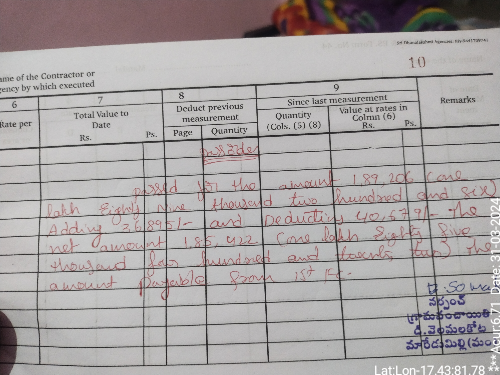 10
ame of the Contractor or
gency by which executed
6 7 8 9 Remarks
Rate per Total Value to Date Rs. Ps.
Deduct previous measurement Page Quantity
Since last measurement
Quantity (Cols. (5) (8) Value at rates in Colmn (6) Rs. Ps.
passed for the amount 1,89,206 (one
lakh Eighty Nine thousand two hundred and six
Adding 36895/- and Deducting 40,679/- The
net amount 1,85,422 (one lakh Eighty five
thousand four hundred and twenty two The
amount payable from 15th FC.
సర్పంచ్
గ్రామపంచాయితీ
మారేడుమిల్లి (మం
Lat:Lon-17.43:81.78
*** Acur:6.71 Date: 31-03-2024